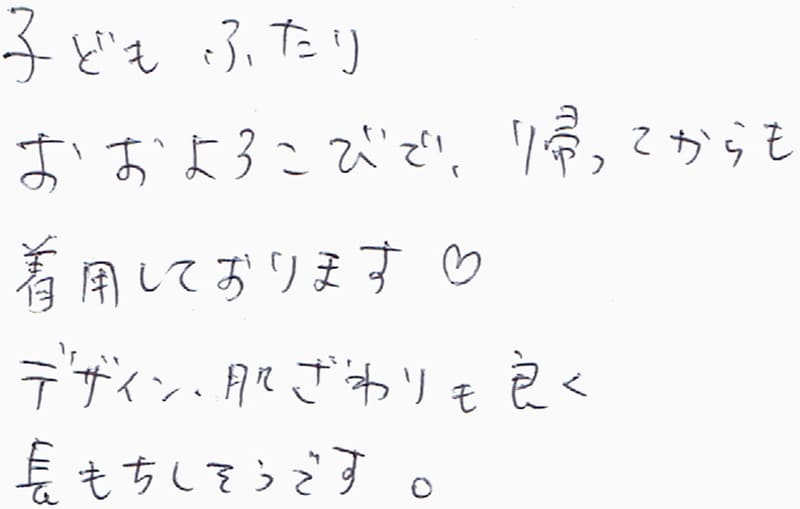 子ども ふたり
おおよろこびで、帰ってからも
着用しております♡
デザイン、肌ざわりも良く
長もちしそうです。